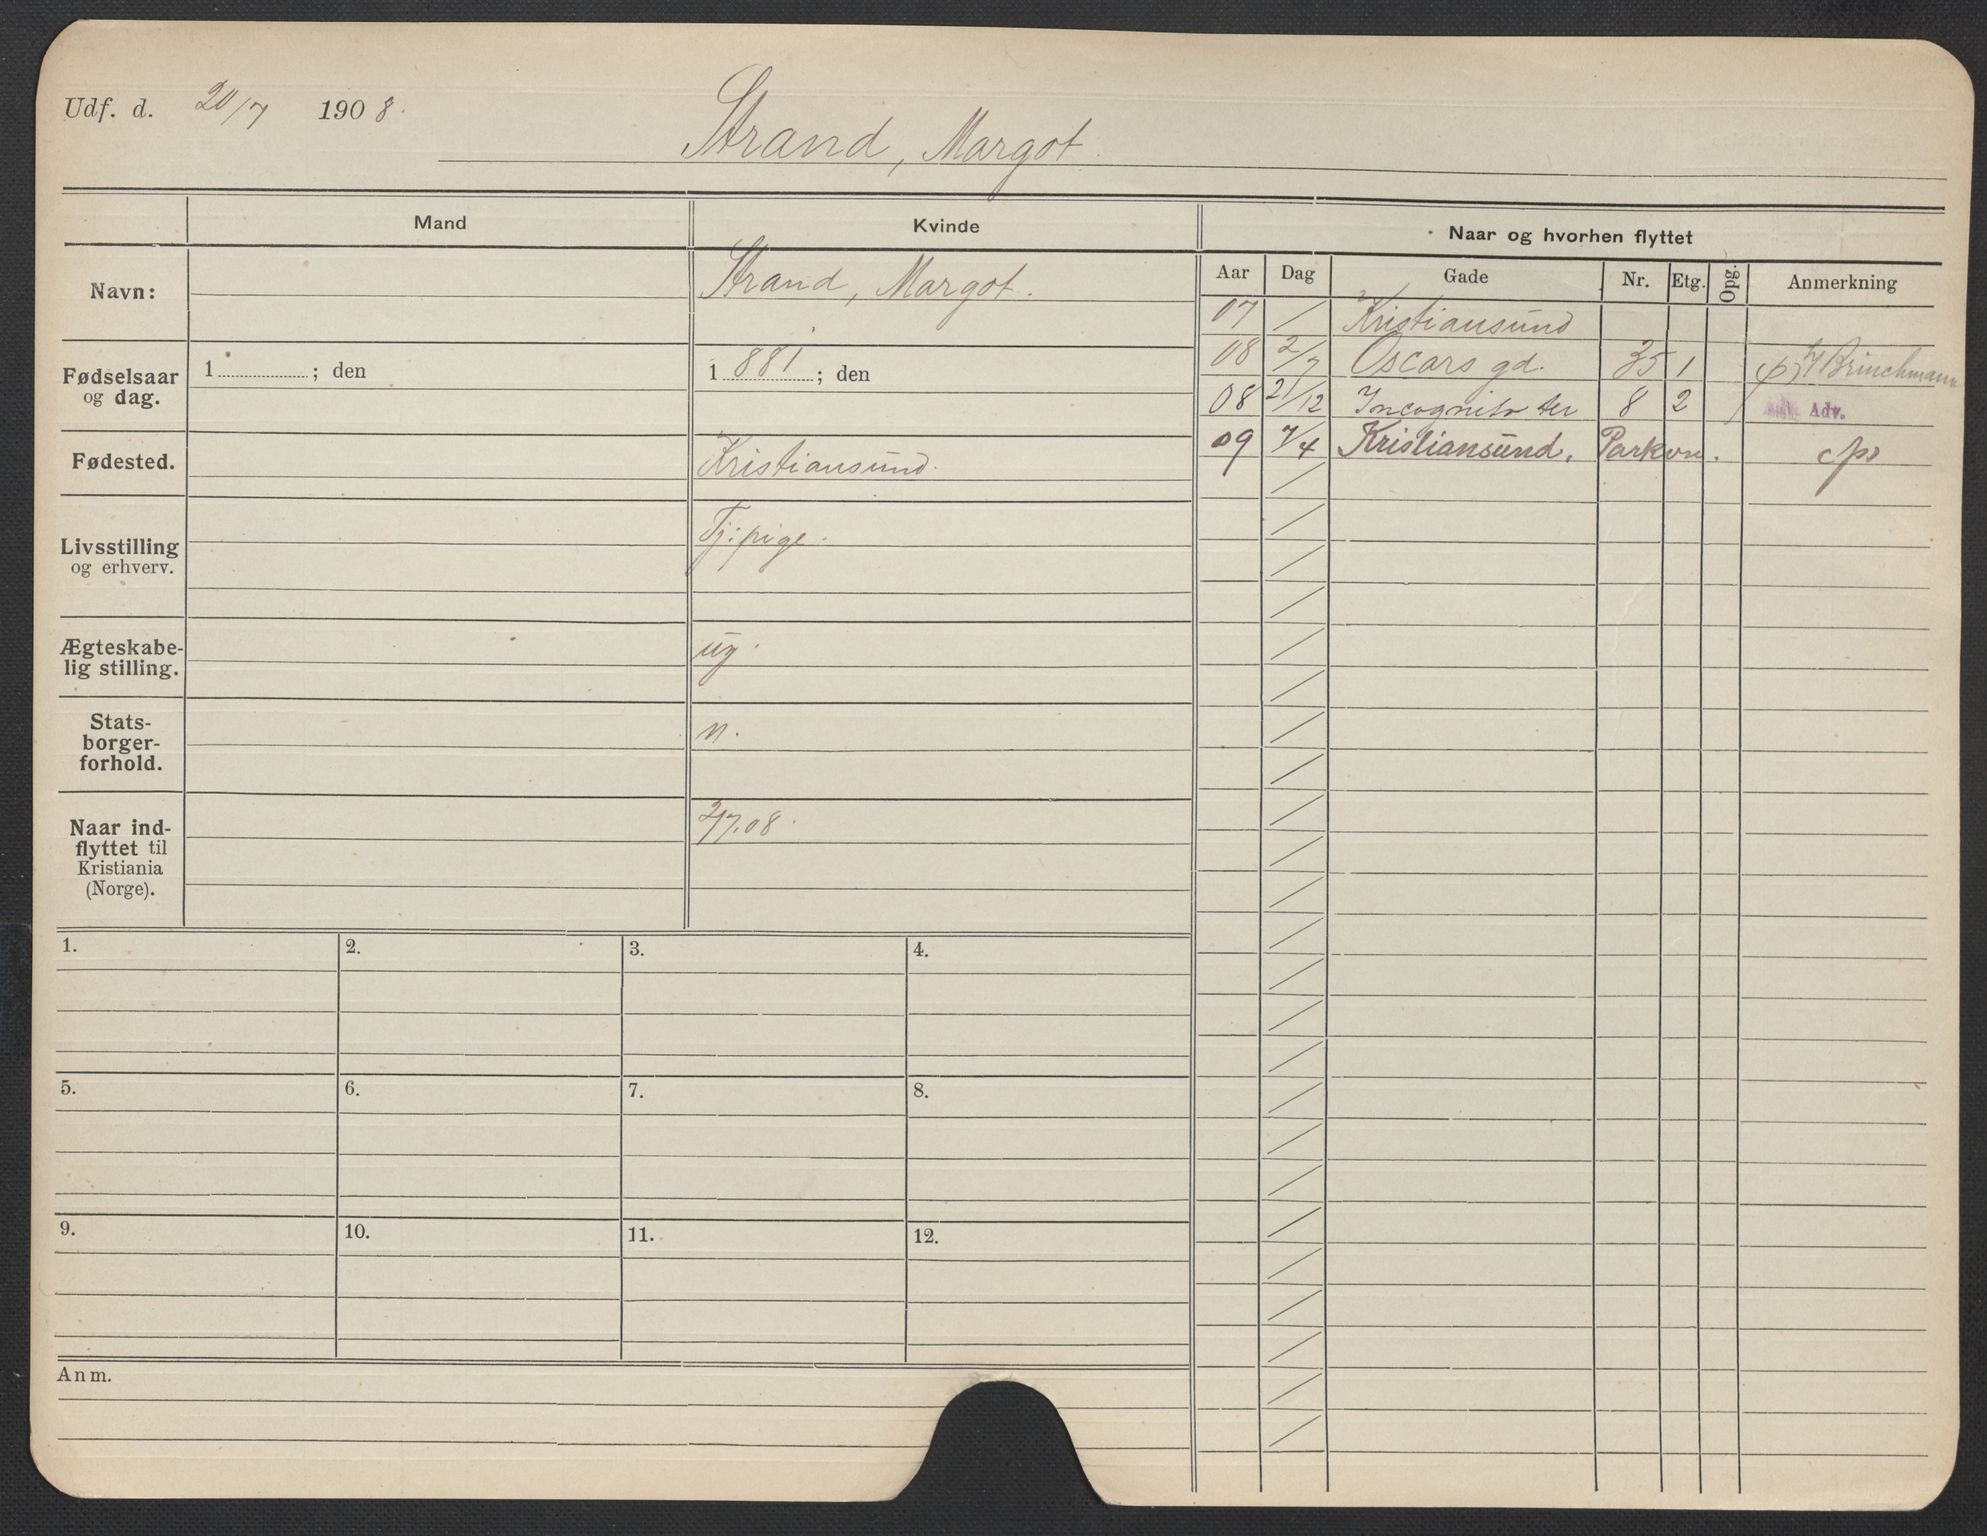 Udf. d. 20/7 1908.
Strand, Margot
Mand
Kvinde
Naar og hvorhen flyttet
Aar Dag Gade Nr. Etg. Opg. Anmerkning
Navn:
Strand, Margot.
Fødselsaar
og dag.
1 ; den
1881 ; den
Fødested.
Kristiansund.
Livsstilling
og erhverv.
Tj:pige.
Ægteskabe-
lig stilling.
ug.
Stats-
borger-
forhold.
n.
Naar ind-
flyttet til
Kristiania
(Norge).
2/7.08.
07 / Kristiansund
08 2/7 Oscars gd. 35 1 Brinchmann
08 21/12 Incognito ter 8 2 Adv.
09 7/4 Kristiansund, Parkvn.
1.
2.
3.
4.
5.
6.
7.
8.
9.
10.
11.
12.
Anm.